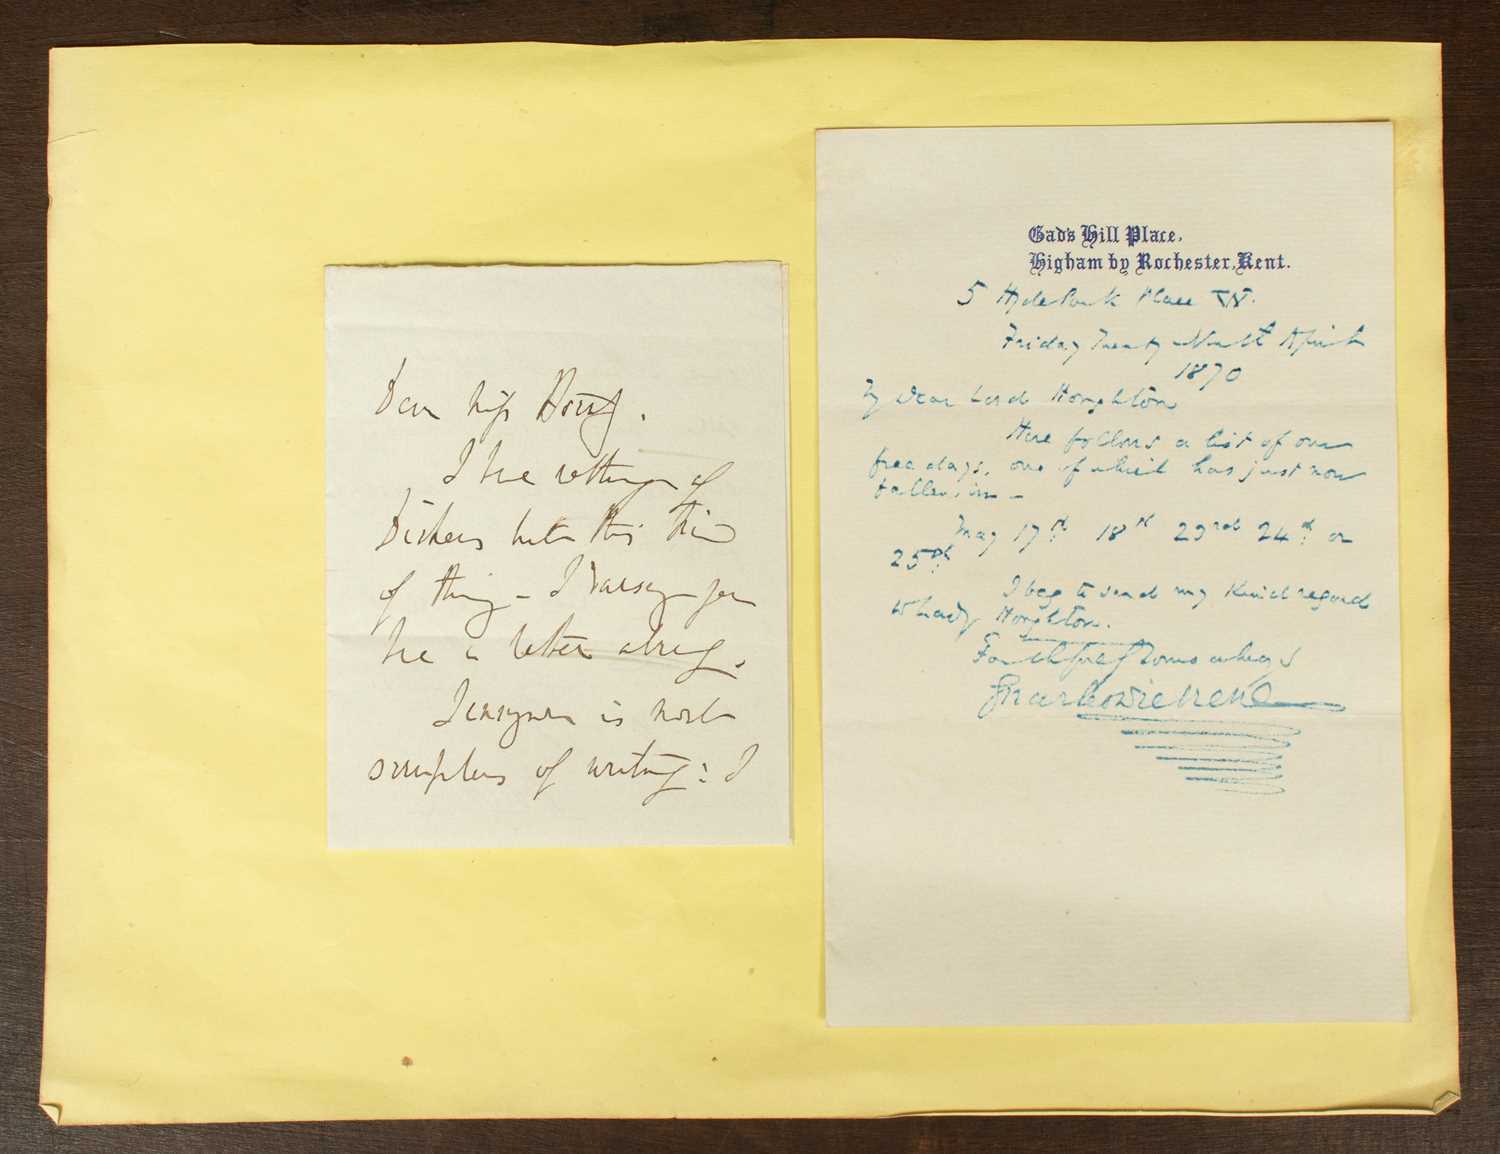 Dear Miss
I have nothing of
Dickens but this kind
of thing - I daresay you
have a letter already.
Tennyson is most
scrupulous of writing: I
Gad's Hill Place,
Higham by Rochester, Kent.
5 Hyde Park Place W.
Friday Twenty Ninth April
1870
My Dear Lord Houghton
Here follows a list of our
free days, one of which has just now
fallen in -
May 17th 18th 23rd 24th or
25th
I beg to send my kind regard
to Lady Houghton.
Faithfully Yours always
Charles Dickens